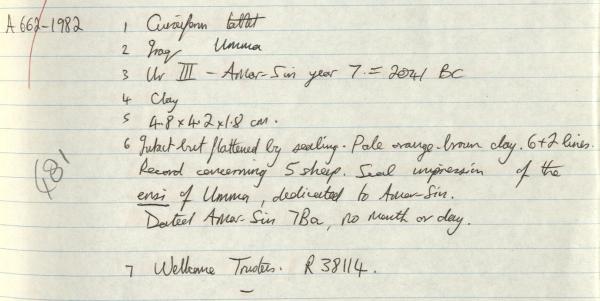 A 662-1982 1 Cuneiform tablet
2 Iraq Umma
3 Ur III - Amar-Sin year 7. = 2041 BC
4 Clay
5 4.8 x 4.2 x 1.8 cm.
6 Intact but flattened by sealing. Pale orange-brown clay. 6+2 lines.
Record concerning 5 sheep. Seal impression of the
ensi of Umma, dedicated to Amar-Sin.
Dated Amar-Sin 7Ba, no month or day.
481
7 Wellcome Trustees. R 38114.